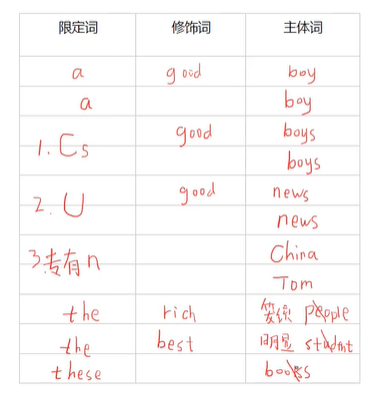 限定词 修饰词 主体词
a good boy
a boy
1. Cs good boys
boys
2. U good news
news
3专有n China
Tom
the rich 笼统 people
the best 明显 student
these books